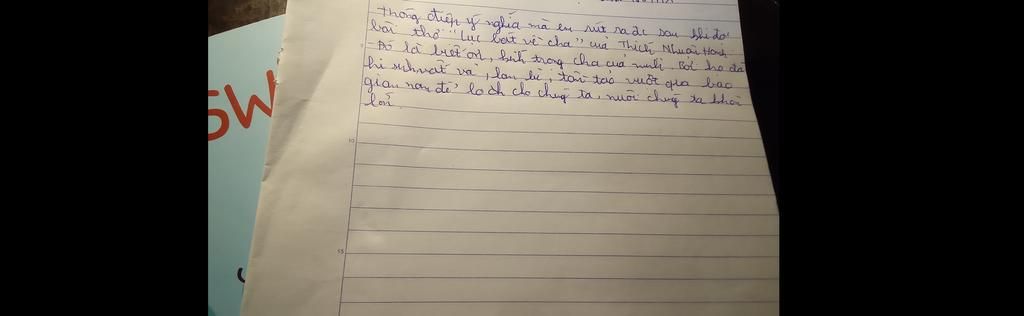 thông điệp ý nghĩa mà em rút ra đc sau khi đọc
bài thơ "Lục bát về cha" của Thích Nhuận Hạnh
- Đó là biết ơn, kính trọng cha của mình. Bởi họ đã
hi sinh vất vả, lam lũ, tần tảo vượt qua bao
gian nan để lo cho chúng ta, nuôi chúng ta khôn
lớn.
10
15
SW